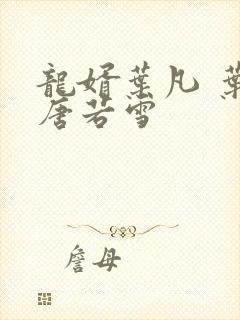 龍婿葉凡 葉
唐若雪
詹母